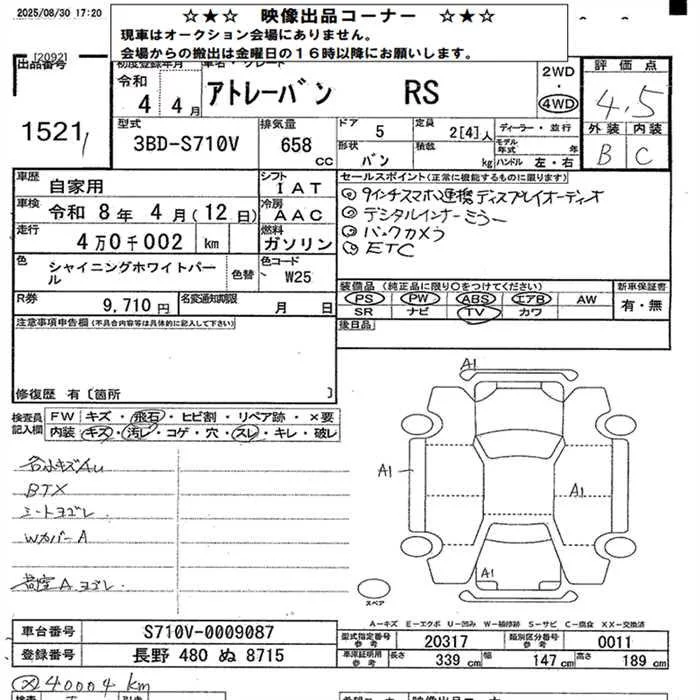 2025/08/30 17:20
☆★☆ 映像出品コーナー ☆★☆
現車はオークション会場にありません。
会場からの搬出は金曜日の16時以降にお願いします。
[2092]
出品番号
1521
初度登録年月
令和
4 4月
車名・グレード
アトレーバン RS
2WD
・
4WD
評価点
4.5
外装 内装
B C
型式
3BD-S710V
排気量
658
CC
ドア
5
定員
2[4]人
形状
バン
積載
kg
ディーラー・並行
モデル年式 年
ハンドル 左・右
車歴
自家用
シフト
IAT
車検
令和 8年 4月(12日)
冷房
AAC
走行
4万0千002 km
燃料
ガソリン
色
シャイニングホワイトパール
色替
色コード
W25
R券
9,710円
名変通知期限
月 日
セールスポイント(正常に機能するものに限ります)
9インチスマホ連携ディスプレイオーディオ
デジタルインナーミラー
バックカメラ
ETC
装備品(純正品に限り○をつけてください)
PS PW ABS エアB AW
SR ナビ TV カワ
新車保証書
有・無
後日品
注意事項申告欄(不具合内容等は具体的に記入して下さい)
修復歴 有〔箇所 〕
検査員記入欄
FW キズ・飛石・ヒビ割・リペア跡・×要
内装 キズ・汚レ・コゲ・穴・スレ・キレ・破レ
各小キズAU
BTX
シートヨゴレ
WカバーA
荷室Aヨゴレ
A1
A1
A1
A1
スペア
A-キズ E-エクボ U-凹み W-補修跡 S-サビ C-腐食 XX-交換済
車台番号
S710V-0009087
登録番号
長野 480 ぬ 8715
型式指定番号
参考
20317
類別区分番号
参考
0011
車庫証明用
参考
長さ 339 cm 幅 147 cm 高さ 189 cm
40004 km